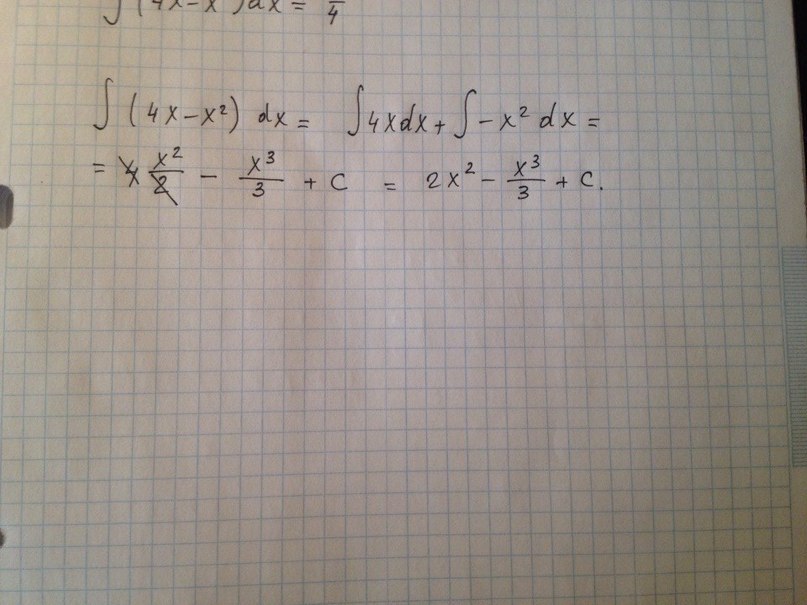 ∫(4x-x )dx = /4
∫(4x-x²) dx = ∫4xdx + ∫-x² dx =
= 4 x²/2 - x³/3 + C = 2x² - x³/3 + C.